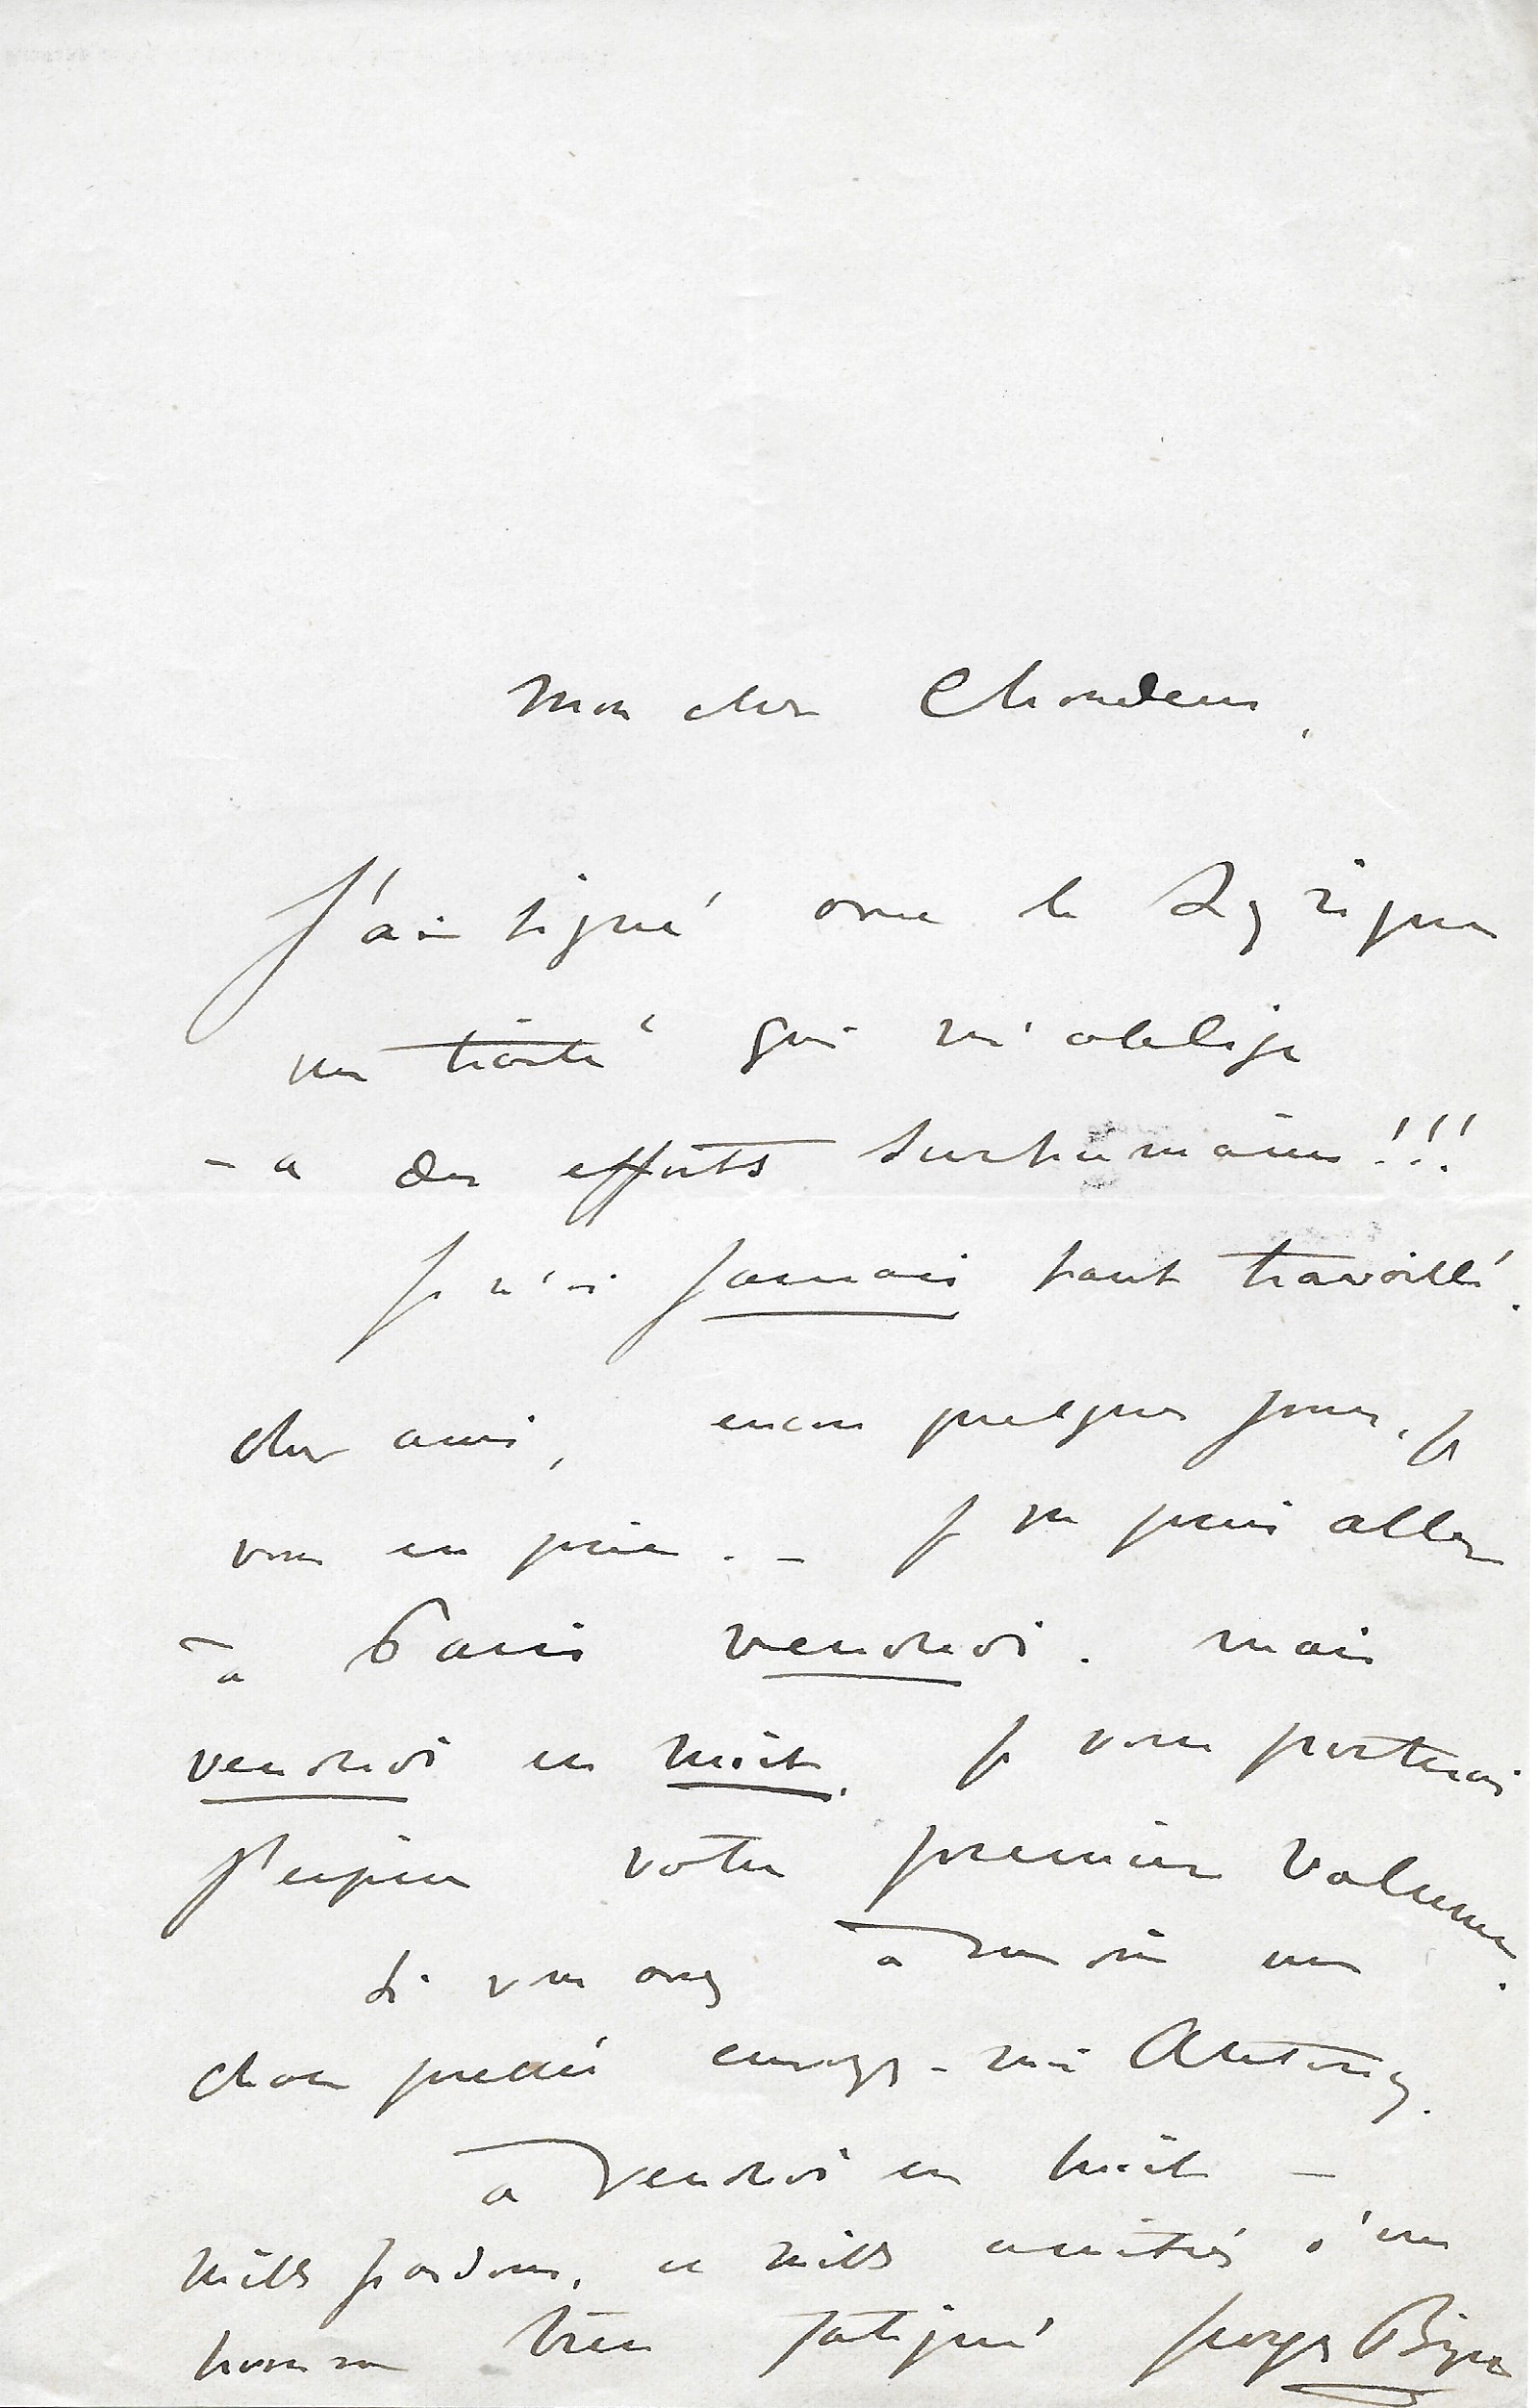 Mon cher Choudens,
J'ai signé avec le Lyrique
un traité qui m'oblige
- à des efforts surhumains!!!
Je n'ai jamais tant travaillé.
cher ami, encore quelques jours, je
vous en prie. - Je ne puis aller
à Paris vendredi. mais
vendredi en huit, je vous porterai
j'espère votre premier volume.
Si vous avez à me dire une
chose pressée envoyez-moi Antony.
à vendredi en huit -
mille pardons, et mille amitiés d'un
homme bien fatigué Georges Bizet